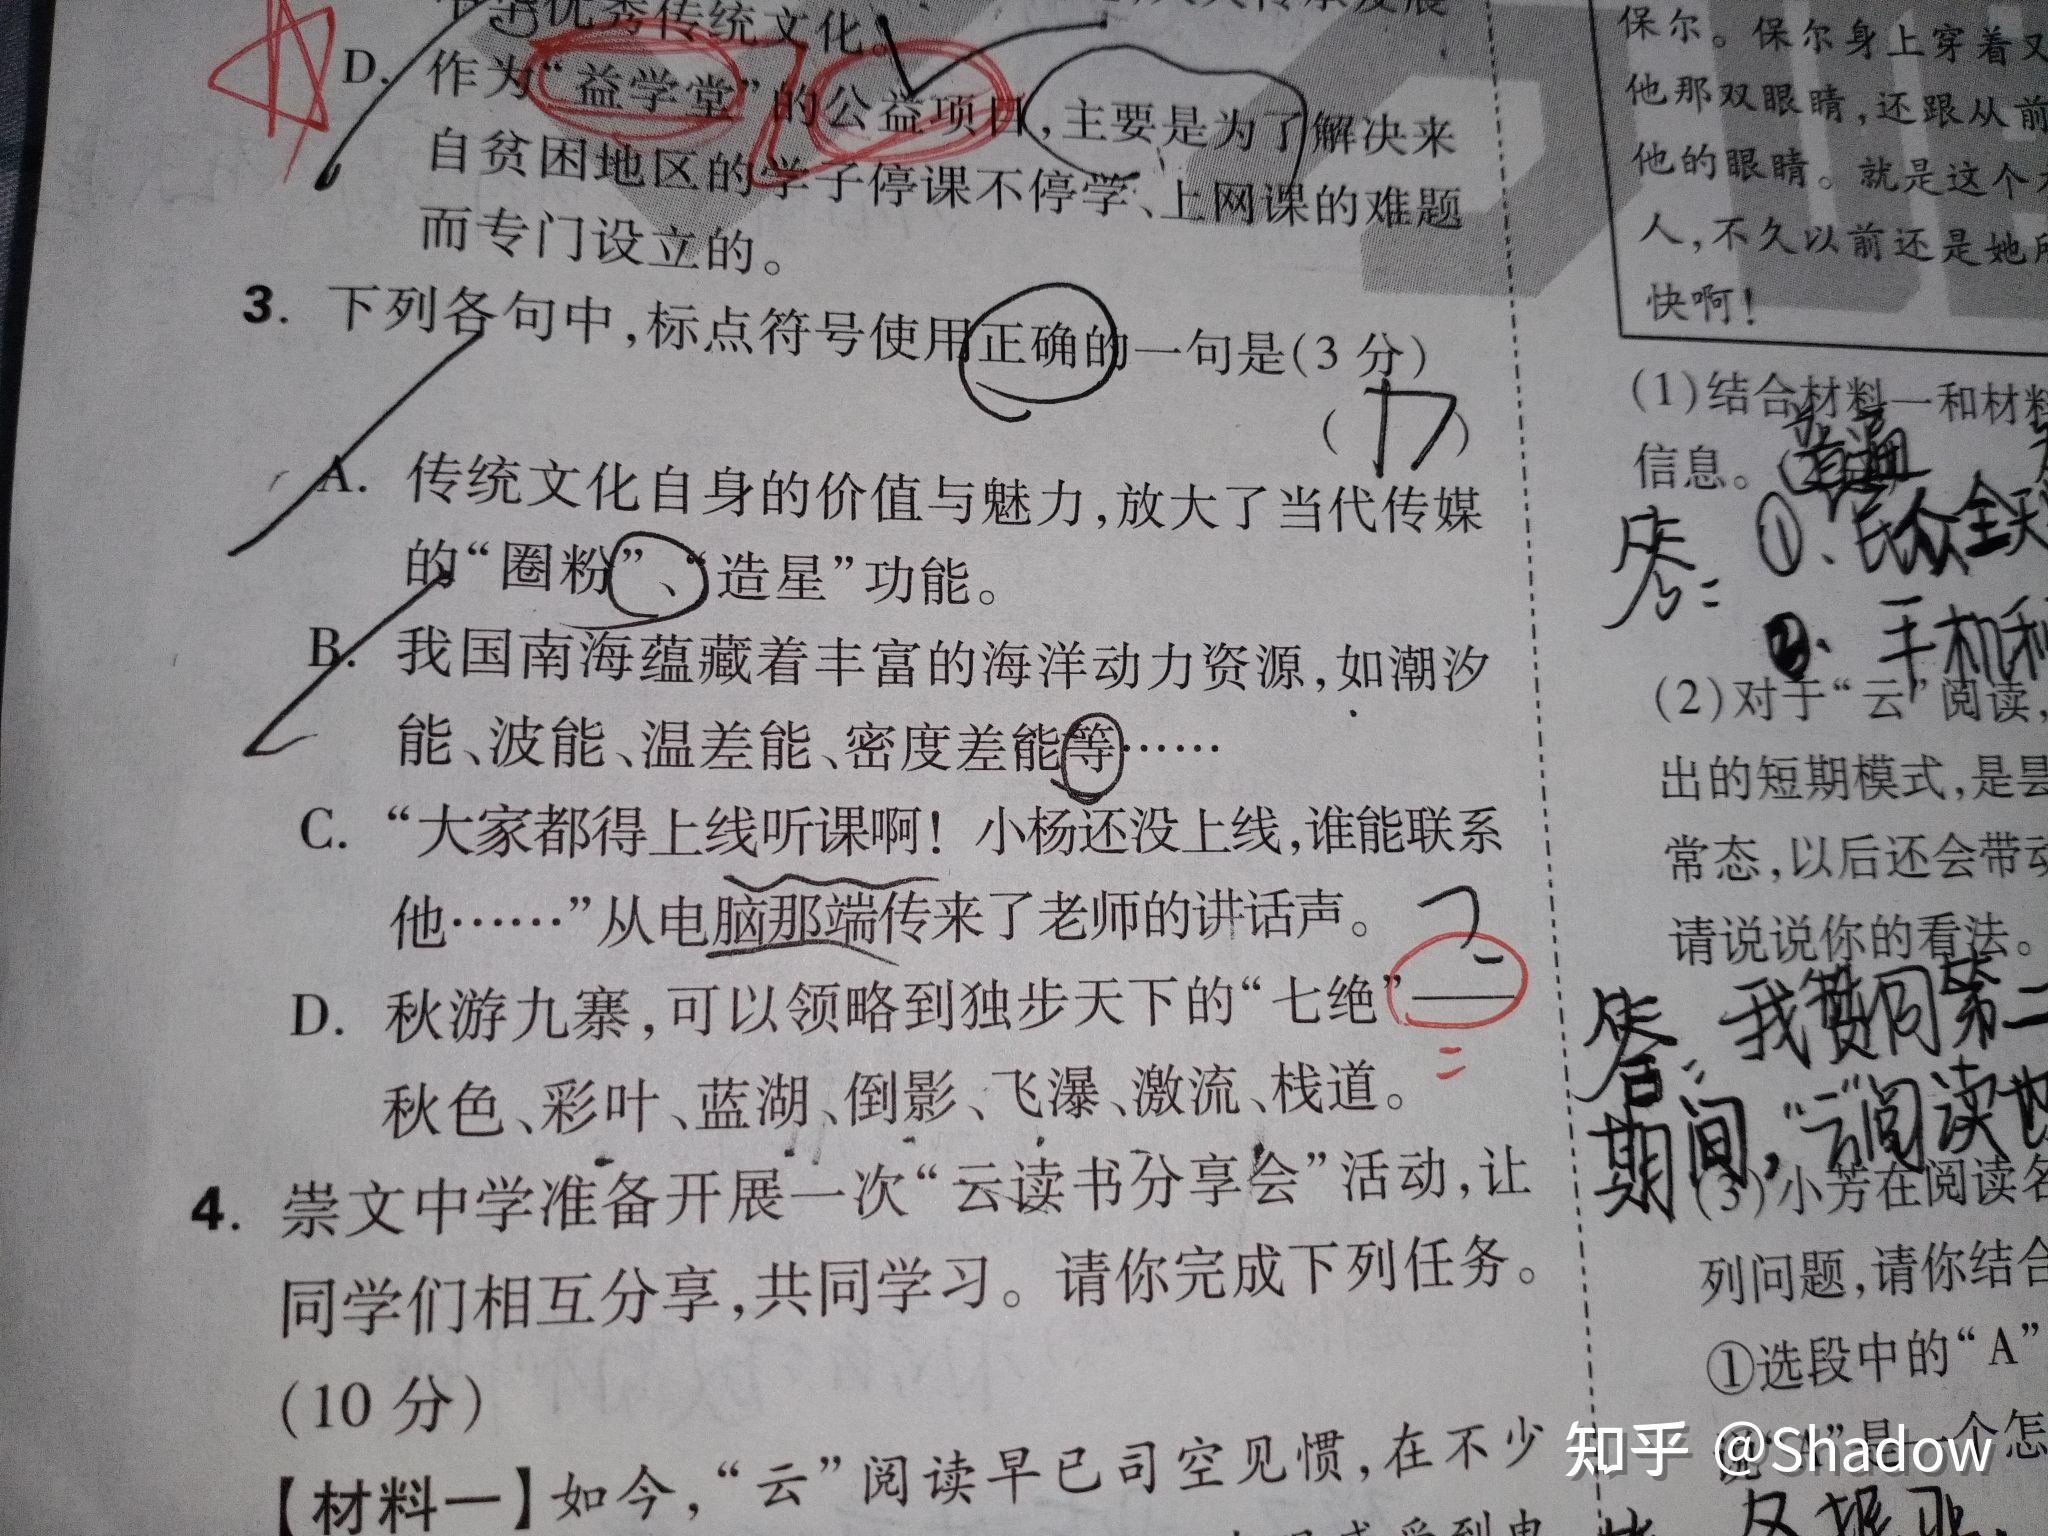 书等优秀传统文化。
D. 作为“益学堂”的公益项目，主要是为了解决来
自贫困地区的学子停课不停学、上网课的难题
而专门设立的。
3. 下列各句中，标点符号使用正确的一句是(3 分)
( )
A. 传统文化自身的价值与魅力，放大了当代传媒
的“圈粉”、“造星”功能。
B. 我国南海蕴藏着丰富的海洋动力资源，如潮汐
能、波能、温差能、密度差能等……
C. “大家都得上线听课啊！小杨还没上线，谁能联系
他……”从电脑那端传来了老师的讲话声。
D. 秋游九寨，可以领略到独步天下的“七绝”——
秋色、彩叶、蓝湖、倒影、飞瀑、激流、栈道。
4. 崇文中学准备开展一次“云读书分享会”活动，让
同学们相互分享，共同学习。请你完成下列任务。
(10 分)
【材料一】如今，“云”阅读早已司空见惯，在不少
保尔。保尔身上穿着又
他那双眼睛，还跟从前
他的眼睛。就是这个
人，不久以前还是她所
快啊！
(1)结合材料一和材料
信息。
答：①、民众全天
②、手机和
(2)对于“云”阅读，
出的短期模式，是昙
常态，以后还会带动
请说说你的看法。
答：我赞同第二
期间，“云”阅读
(3)小芳在阅读名
列问题，请你结合
①选段中的“A”
说“A”是一个怎
知乎 @Shadow